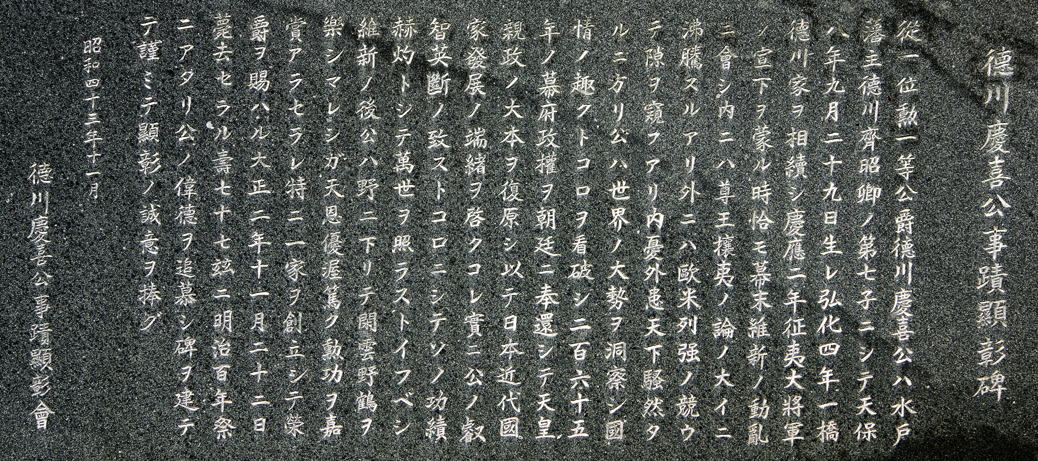 德川慶喜公事蹟顯彰碑
從一位勲一等公爵德川慶喜公ハ水戸
藩主德川齊昭卿ノ第七子ニシテ天保
八年九月二十九日生レ弘化四年一橋
德川家ヲ相續シ慶應二年征夷大將軍
ノ宣下ヲ蒙ル時恰モ幕末維新ノ動亂
ニ會シ内ニハ尊王攘夷ノ論ノ大イニ
沸騰スルアリ外ニハ歐米列强ノ競ウ
テ隙ヲ窺フアリ内憂外患天下騒然タ
ルニ方リ公ハ世界ノ大勢ヲ洞察シ國
情ノ趣クトコロヲ看破シ二百六十五
年ノ幕府政權ヲ朝廷ニ奉還シテ天皇
親政ノ大本ヲ復原シ以テ日本近代國
家發展ノ端緒ヲ啓クコレ實ニ公ノ叡
智英斷ノ致ストコロニシテソノ功績
赫灼トシテ萬世ヲ照ラストイフベシ
維新ノ後公ハ野ニ下リテ閑雲野鶴ヲ
樂シマレシガ天恩優渥篤ク勲功ヲ嘉
賞アラセラレ特ニ一家ヲ創立シテ榮
爵ヲ賜ハル大正二年十一月二十二日
薨去セラル壽七十七玆ニ明治百年祭
ニアタリ公ノ偉德ヲ追慕シ碑ヲ建テ
テ謹ミテ顯彰ノ誠意ヲ捧グ
昭和四十三年十一月
德川慶喜公事蹟顯彰會